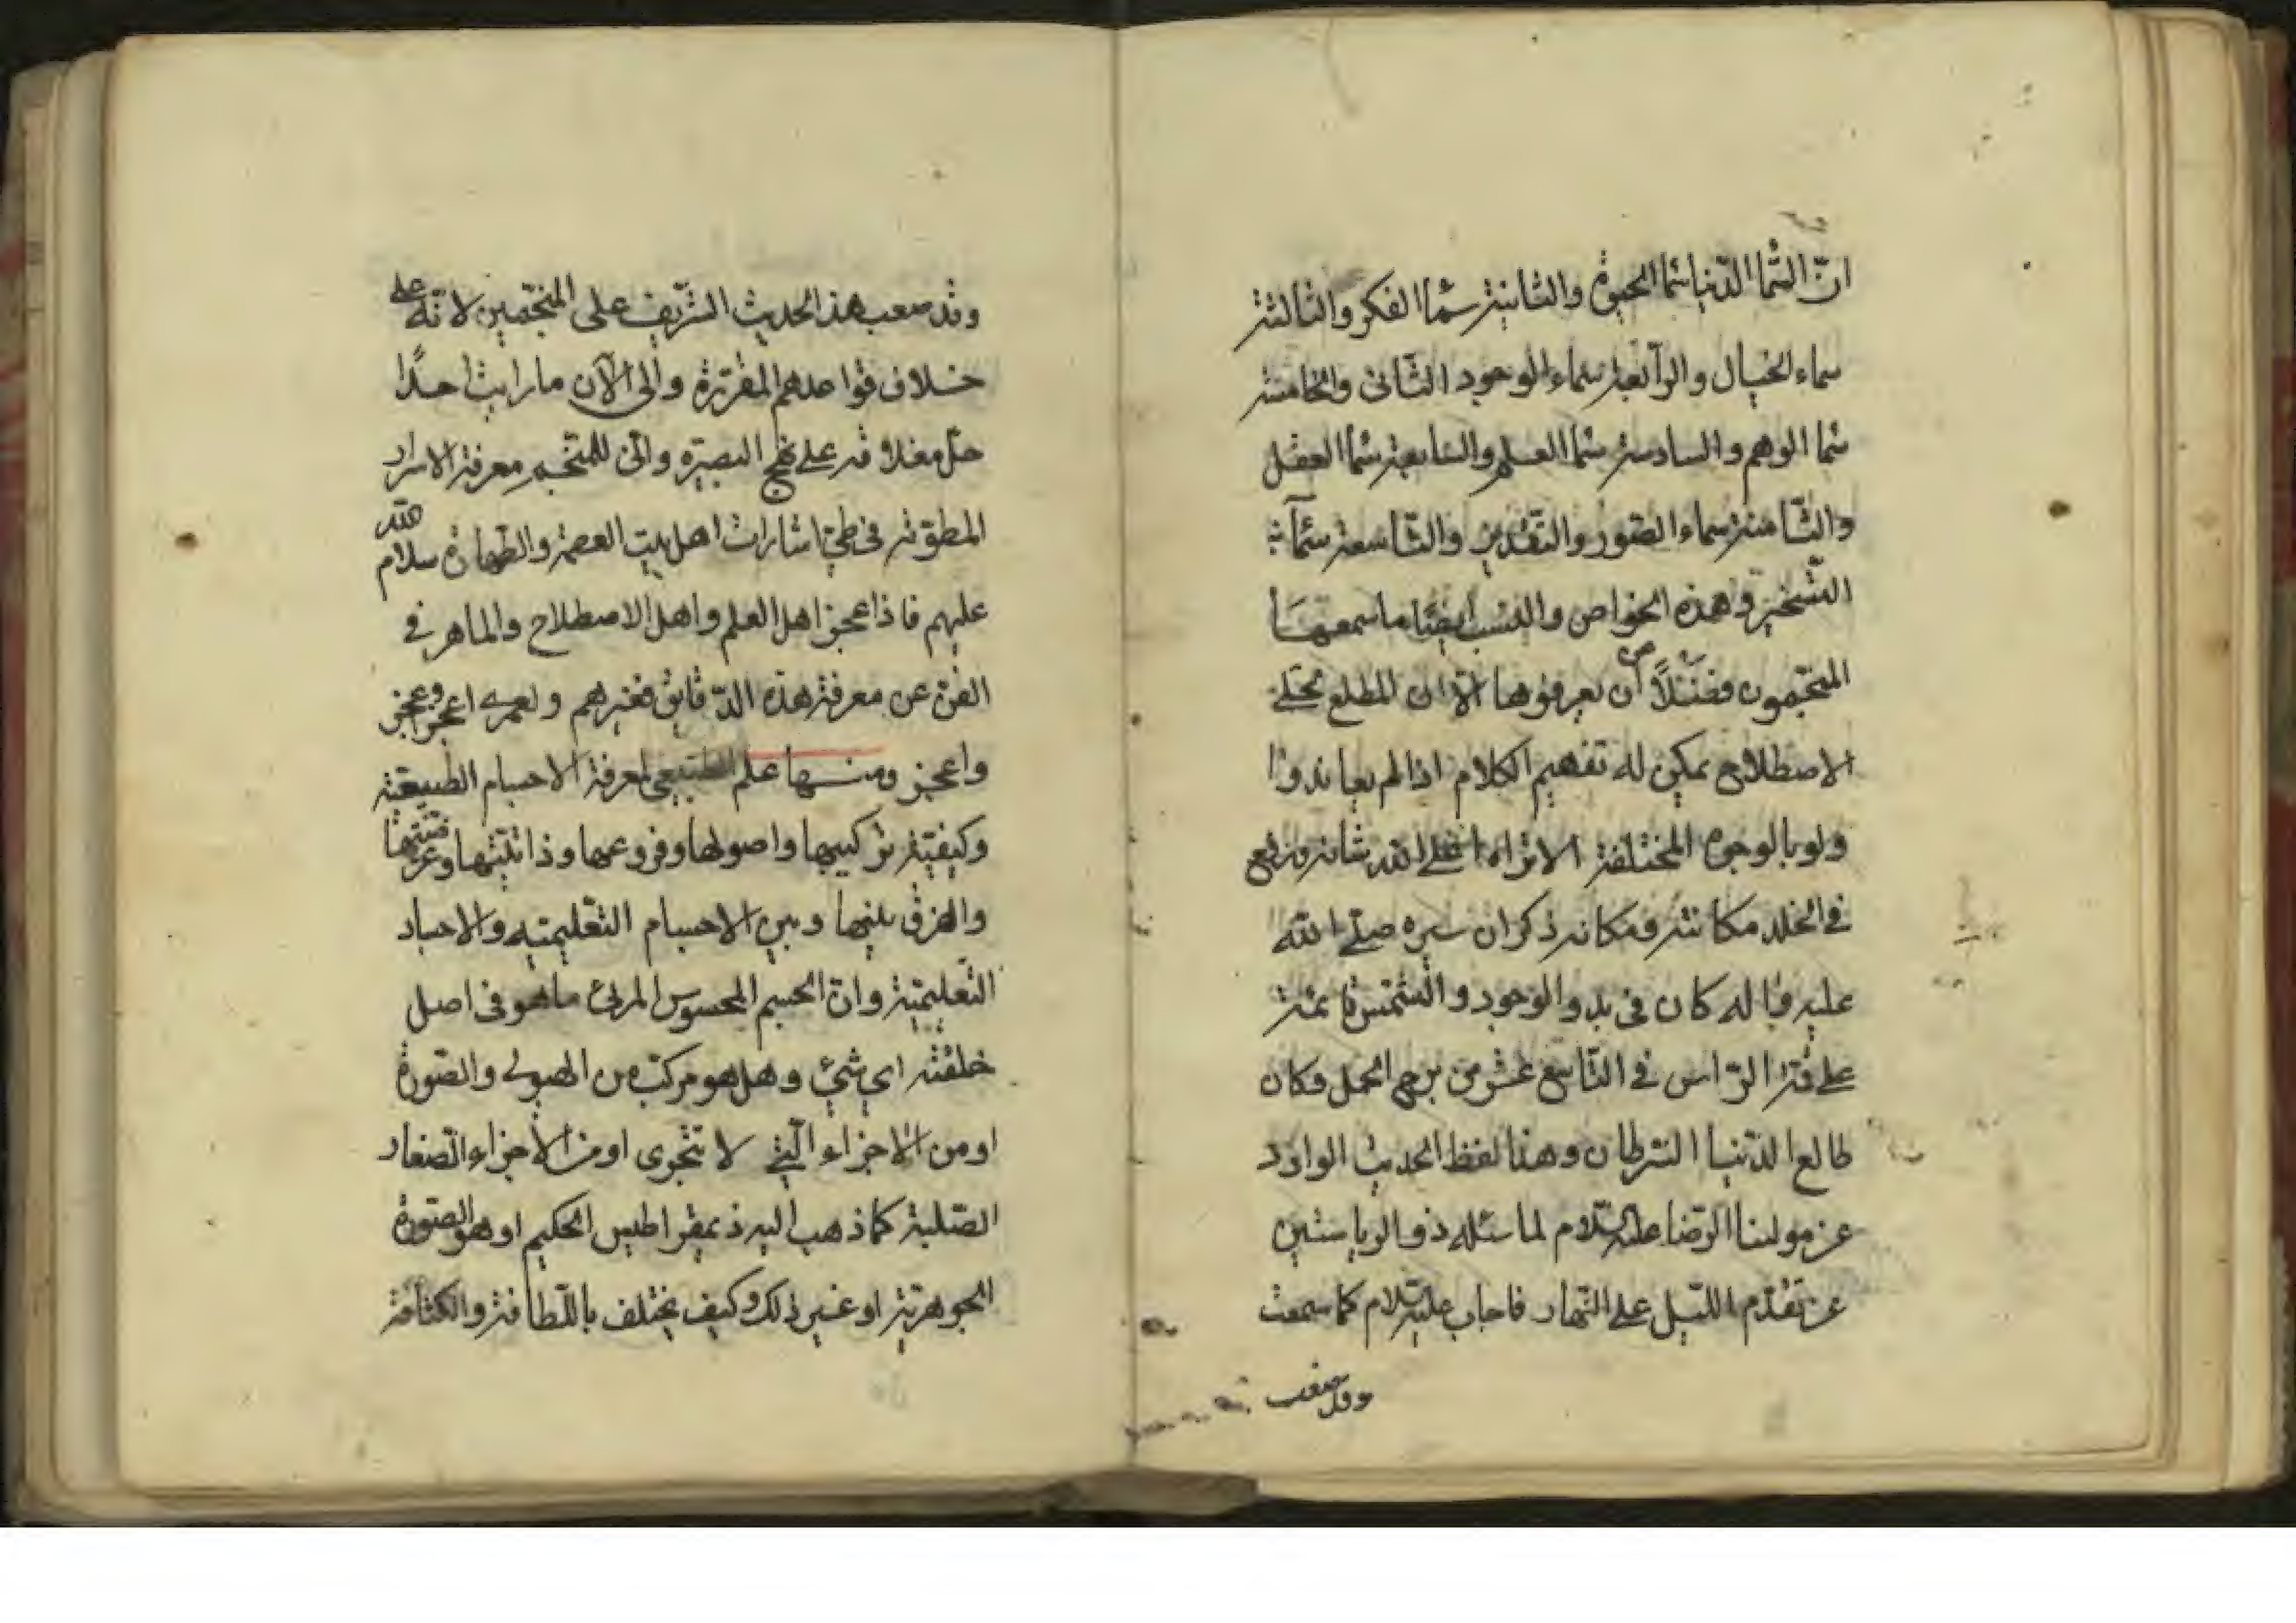 انّ السّما الدّنيا سما الحيوة والثانية سما الفكر والثالثة
سماء الخيال والرّابعة سماء الوجود الثّانى والخامسة
سما الوهم والسادسة سما العلم والسّابعة سما العقل
والثّامنة سماء الصّور والتّقدير والتّاسعة سمآء
التّسخير وهذه الخواص والنسب ايضًا ما سمعها
المنجّمون فضلًا من ان يعرفوها الّا ان المطلع على
الاصطلاح يمكن له تفهيم الكلام اذا لم يعاندوا
ولو بالوجوه المختلفة الا تراه اعلى الله شانه ورفع
فى الخلد مكانته ومكانه ذكر ان سيره صلّى الله
عليه وآله كان فى بدو الوجود والشّمس قائمة
على قمّة الرّاس فى التّاسع عشر من برج الحمل وكان
طالع الدّنيا السّرطان وهذا لفظ الحديث الوارد
عن مولينا الرّضا عليه السّلام لما سئله ذو الرياستين
عن تقدّم اللّيل على النّهار فاجاب عليه السّلام كما سمعت
وقد صعب
وقد صعب هذا الحديث الشّريف على المنجّمين لانّه على
خلاف قواعدهم المقرّرة والى الآن ما رايت احدًا
حلّ مغلاقه على نهج البصيرة وانّى للمنجّم معرفة الاسرار
المطويّة فى طىّ اشارات اهل بيت العصمة والطّهارة سلام الله
عليهم فاذا عجز اهل العلم واهل الاصطلاح والماهر فى
الفنّ عن معرفة هذه الدّقايق فغيرهم ولعمرى اعجز واعجز
واعجز ومنها علم الطبيعى لمعرفة الاجسام الطبيعيّة
وكيفيّة تركيبها واصولها وفروعها وذاتيّتها وعرضيّتها
والفرق بينها وبين الاجسام التّعليميّه والاجساد
التّعليميّة وانّ الجسم المحسوس المرئى ما هو فى اصل
خلقته اى شىء وهل هو مركّب من الهيولى والصّورة
او من الاجزاء الّتى لا تتجزى او من الاجزاء الصّغار
الصّلبة كما ذهب اليه ذيمقراطيس الحكيم او هو الصّورة
الجوهريّة او غير ذلك وكيف يختلف باللّطافة والكثافة